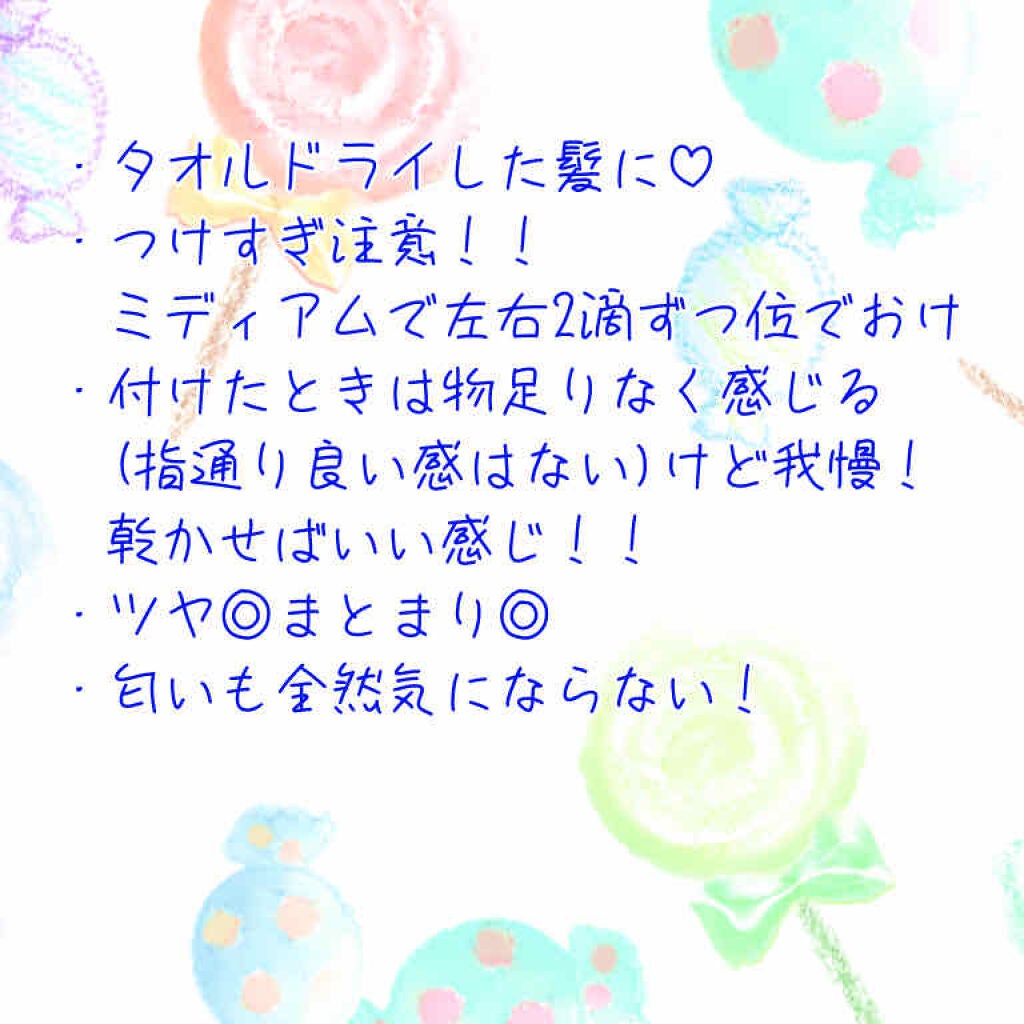 ・タオルドライした髪に♡
・つけすぎ注意！！
ミディアムで左右2滴ずつ位でおけ
・付けたときは物足りなく感じる
(指通り良い感はない)けど我慢！
乾かせばいい感じ！！
・ツヤ◎まとまり◎
・匂いも全然気にならない！